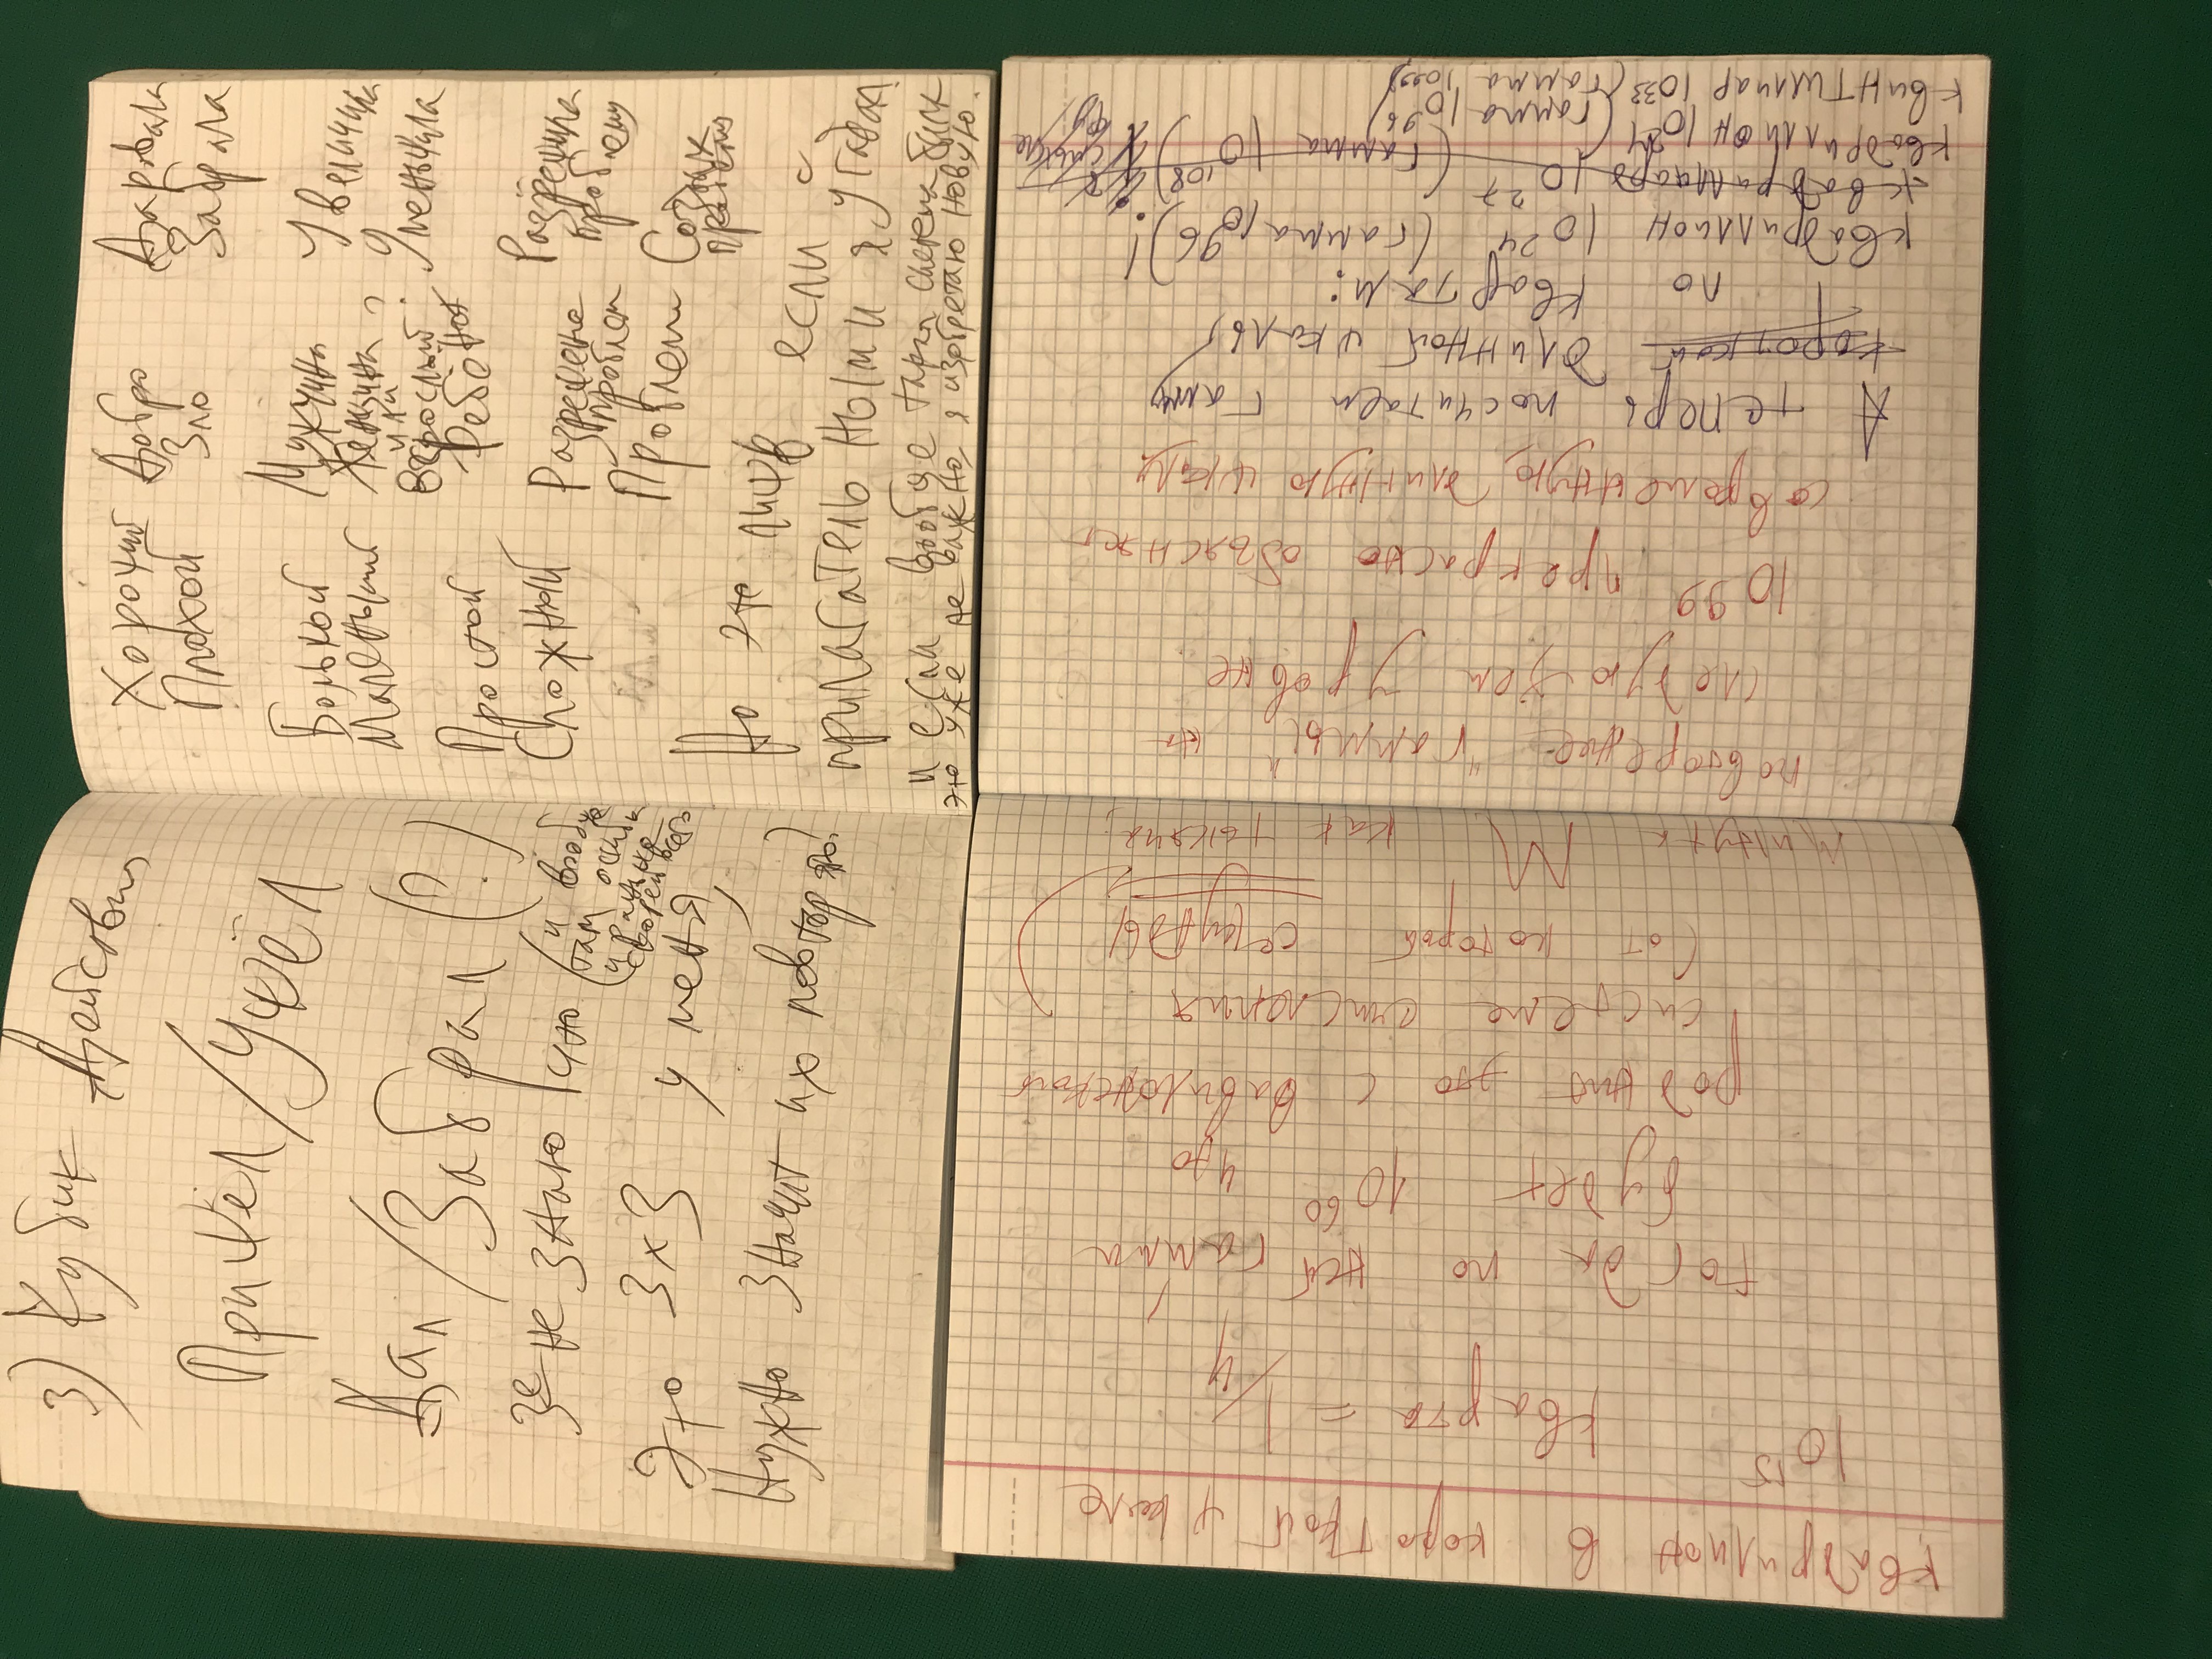 3) Кубик Действия
Пришёл/Ушёл
Дал/Забрал (?)
3е не знаю что (и вообще
там ошибка
и раньше
скорей всего
Это 3х3 у меня,
Нужно значит их повторять?
Хороший Добро Даровала
Плохой Зло Забрала
Большой Мужчина Увеличила
Маленький Женщина Уменьшила
или ?
Взрослый
Ребёнок
Простой
Сложный
Разрешена Разрешила
проблем проблему
Проблем Создал
Но это лишь если с
прилагательными я угадал.
и если вообще такая система была
это уже не важно, я изобретаю новую.
квадрилион в короткой шкале
10 15 кварта = 1/4
тогда по ней гамма
будет 10 60 что
роднит это с вавилонской
системе счисления
(от которой секунды
минуты как тысяча,
повторение "гаммы" на
следующем уровне
10 99 прекрасно объясняет
современную длинную шкалу
А теперь посчитаем гамму
короткой длинной шкалы
по квартам:
квадриллион 10 24 (гамма 10 96)!
квадриллиард 10 27 (гамма 10 108)
квадриллион 10 24 (гамма 10 96
квинтилиар 10 33 (гамма 10 99)